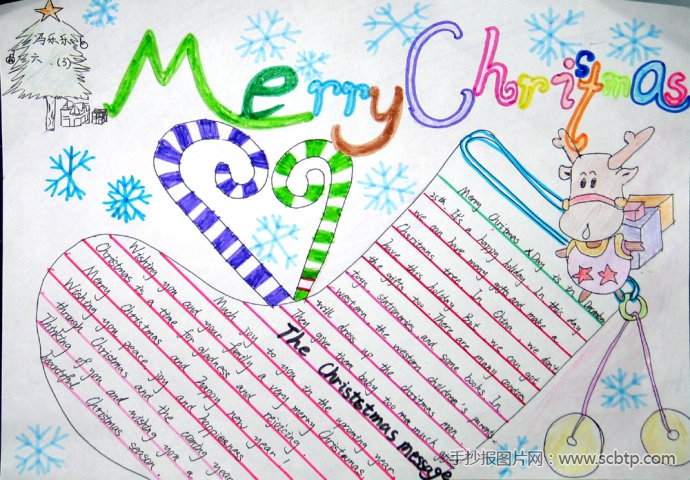 冯乐乐
六.(3)
Merry Christmas
Merry Christmas Day is the December
25th. It's a happy holiday. In this day,
we can have many gifts and make a
Christmas tree. In China, we don't
have this holiday. But we can got
the gifts, too. There are many
toys, stationeries and some books. In
western, the western children's parents
will dress up the christmas men.
Then give them baby too mas much
The Christstmas message
Wishing you and your family a very merry Christmas.
Much joy to you in the upcoming year.
Christmas is a time for gladness and rejoicing.
Merry Christmas and happy new year!
Wishing you peace, joy and happieness
through Christmas and the coming year.
Thinking of you and wishing you a
beautiful Christmas season.
手抄报图片网：www.scbtp.com